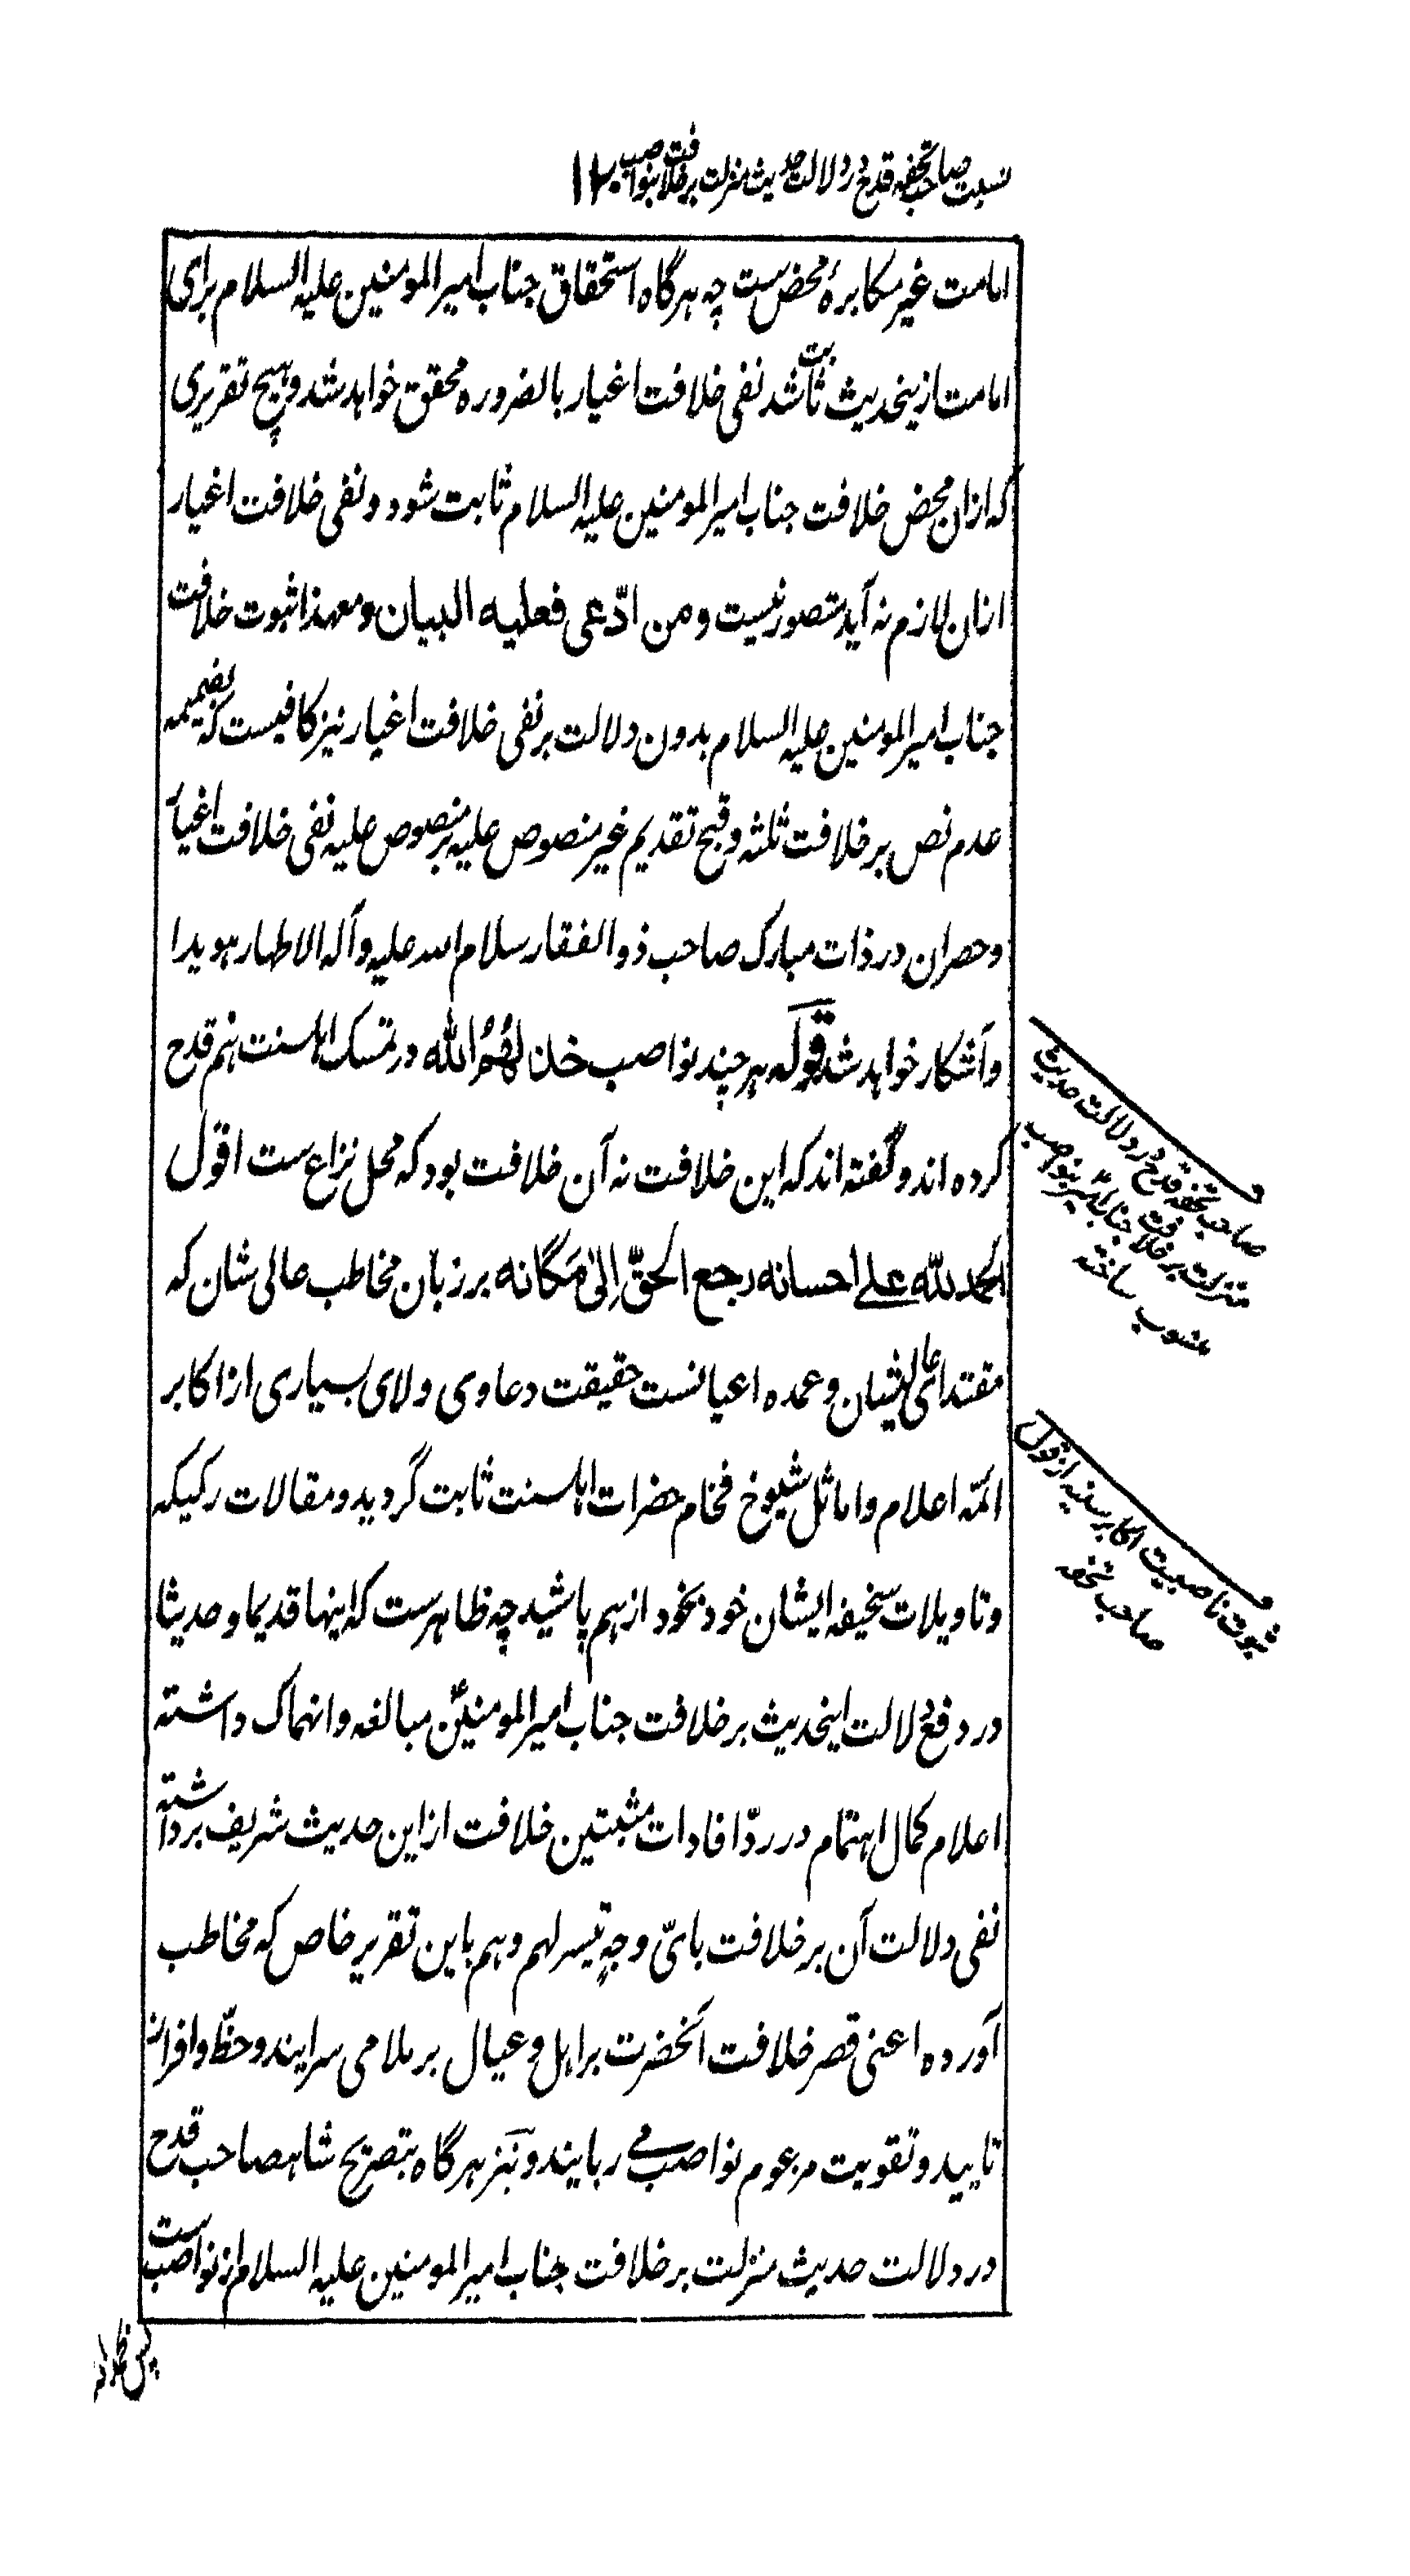 نسبت صاحب تحفه قدح در دلالت حدیث منزلت بر خلافت بنواصب ۱۲۰
امامت غیر مکابرۂ محض ست چه هرگاه استحقاق جناب امیرالمومنین علیه السلام برای
امامت ازینحدیث ثابت شد نفی خلافت اغیار بالضروره محقق خواهد شد و هیچ تقریری
که ازان محض خلافت جناب امیرالمومنین علیه السلام ثابت شود و نفی خلافت اغیار
ازان لازم نه آید متصور نیست و من ادّعی فعلیه البیان و معهذا ثبوت خلافت
جناب امیرالمومنین علیه السلام بدون دلالت بر نفی خلافت اغیار نیز کافیست که بضمیمه
عدم نص بر خلافت ثلثه و قبح تقدیم غیر منصوص علیه بر منصوص علیه نفی خلافت اغیار
و حصر ان در ذات مبارک صاحب ذوالفقار سلام الله علیه و آله الاطهار هویدا
و آشکار خواهد شد قوله هر چند نواصب خذلهُمُ الله در تمسک اهلسنت هم قدح
کرده اند و گفته اند که این خلافت نه آن خلافت بود که محل نزاع ست اقول
الحمد لله علے احسانه رجع الحقّ اِلیٰ مَکانه بر زبان مخاطب عالی شان که
مقتدای عالیشان و عمده اعیانست حقیقت دعاوی ولای بسیاری از اکابر
ائمّه اعلام و اماثل شیوخ فخام حضرات اهلسنت ثابت گردید و مقالات رکیکه
و تاویلات سخیفه ایشان خود بخود از هم پاشید چه ظاهرست که اینها قدیما و حدیثا
در دفع دلالت اینحدیث بر خلافت جناب امیرالمومنینؑ مبالغه و انهماک داشته
اعلام کمال اهتمام در ردّ افادات مثبتین خلافت از این حدیث شریف برداشته
نفی دلالت آن بر خلافت بایّ وجهٍ تیسر لهم و هم باین تقریر خاص که مخاطب
آورده اعنی قصر خلافت آنحضرت بر اهل و عیال بر ملا می سرایند و حظّ وافر از
تایید و تقویت مزعوم نواصب مے ربایند و نیز هرگاه بتصریح شاهصاحب قدح
در دلالت حدیث منزلت بر خلافت جناب امیرالمومنین علیه السلام از نواصب ست
صاحب تحفه قدح در دلالت حدیث
منزلت بر خلافت جناب امیرؑ بنواصب
منسوب ساخته
ثبوت ناصبیت اکابر سنیه از قول
صاحب تحفه